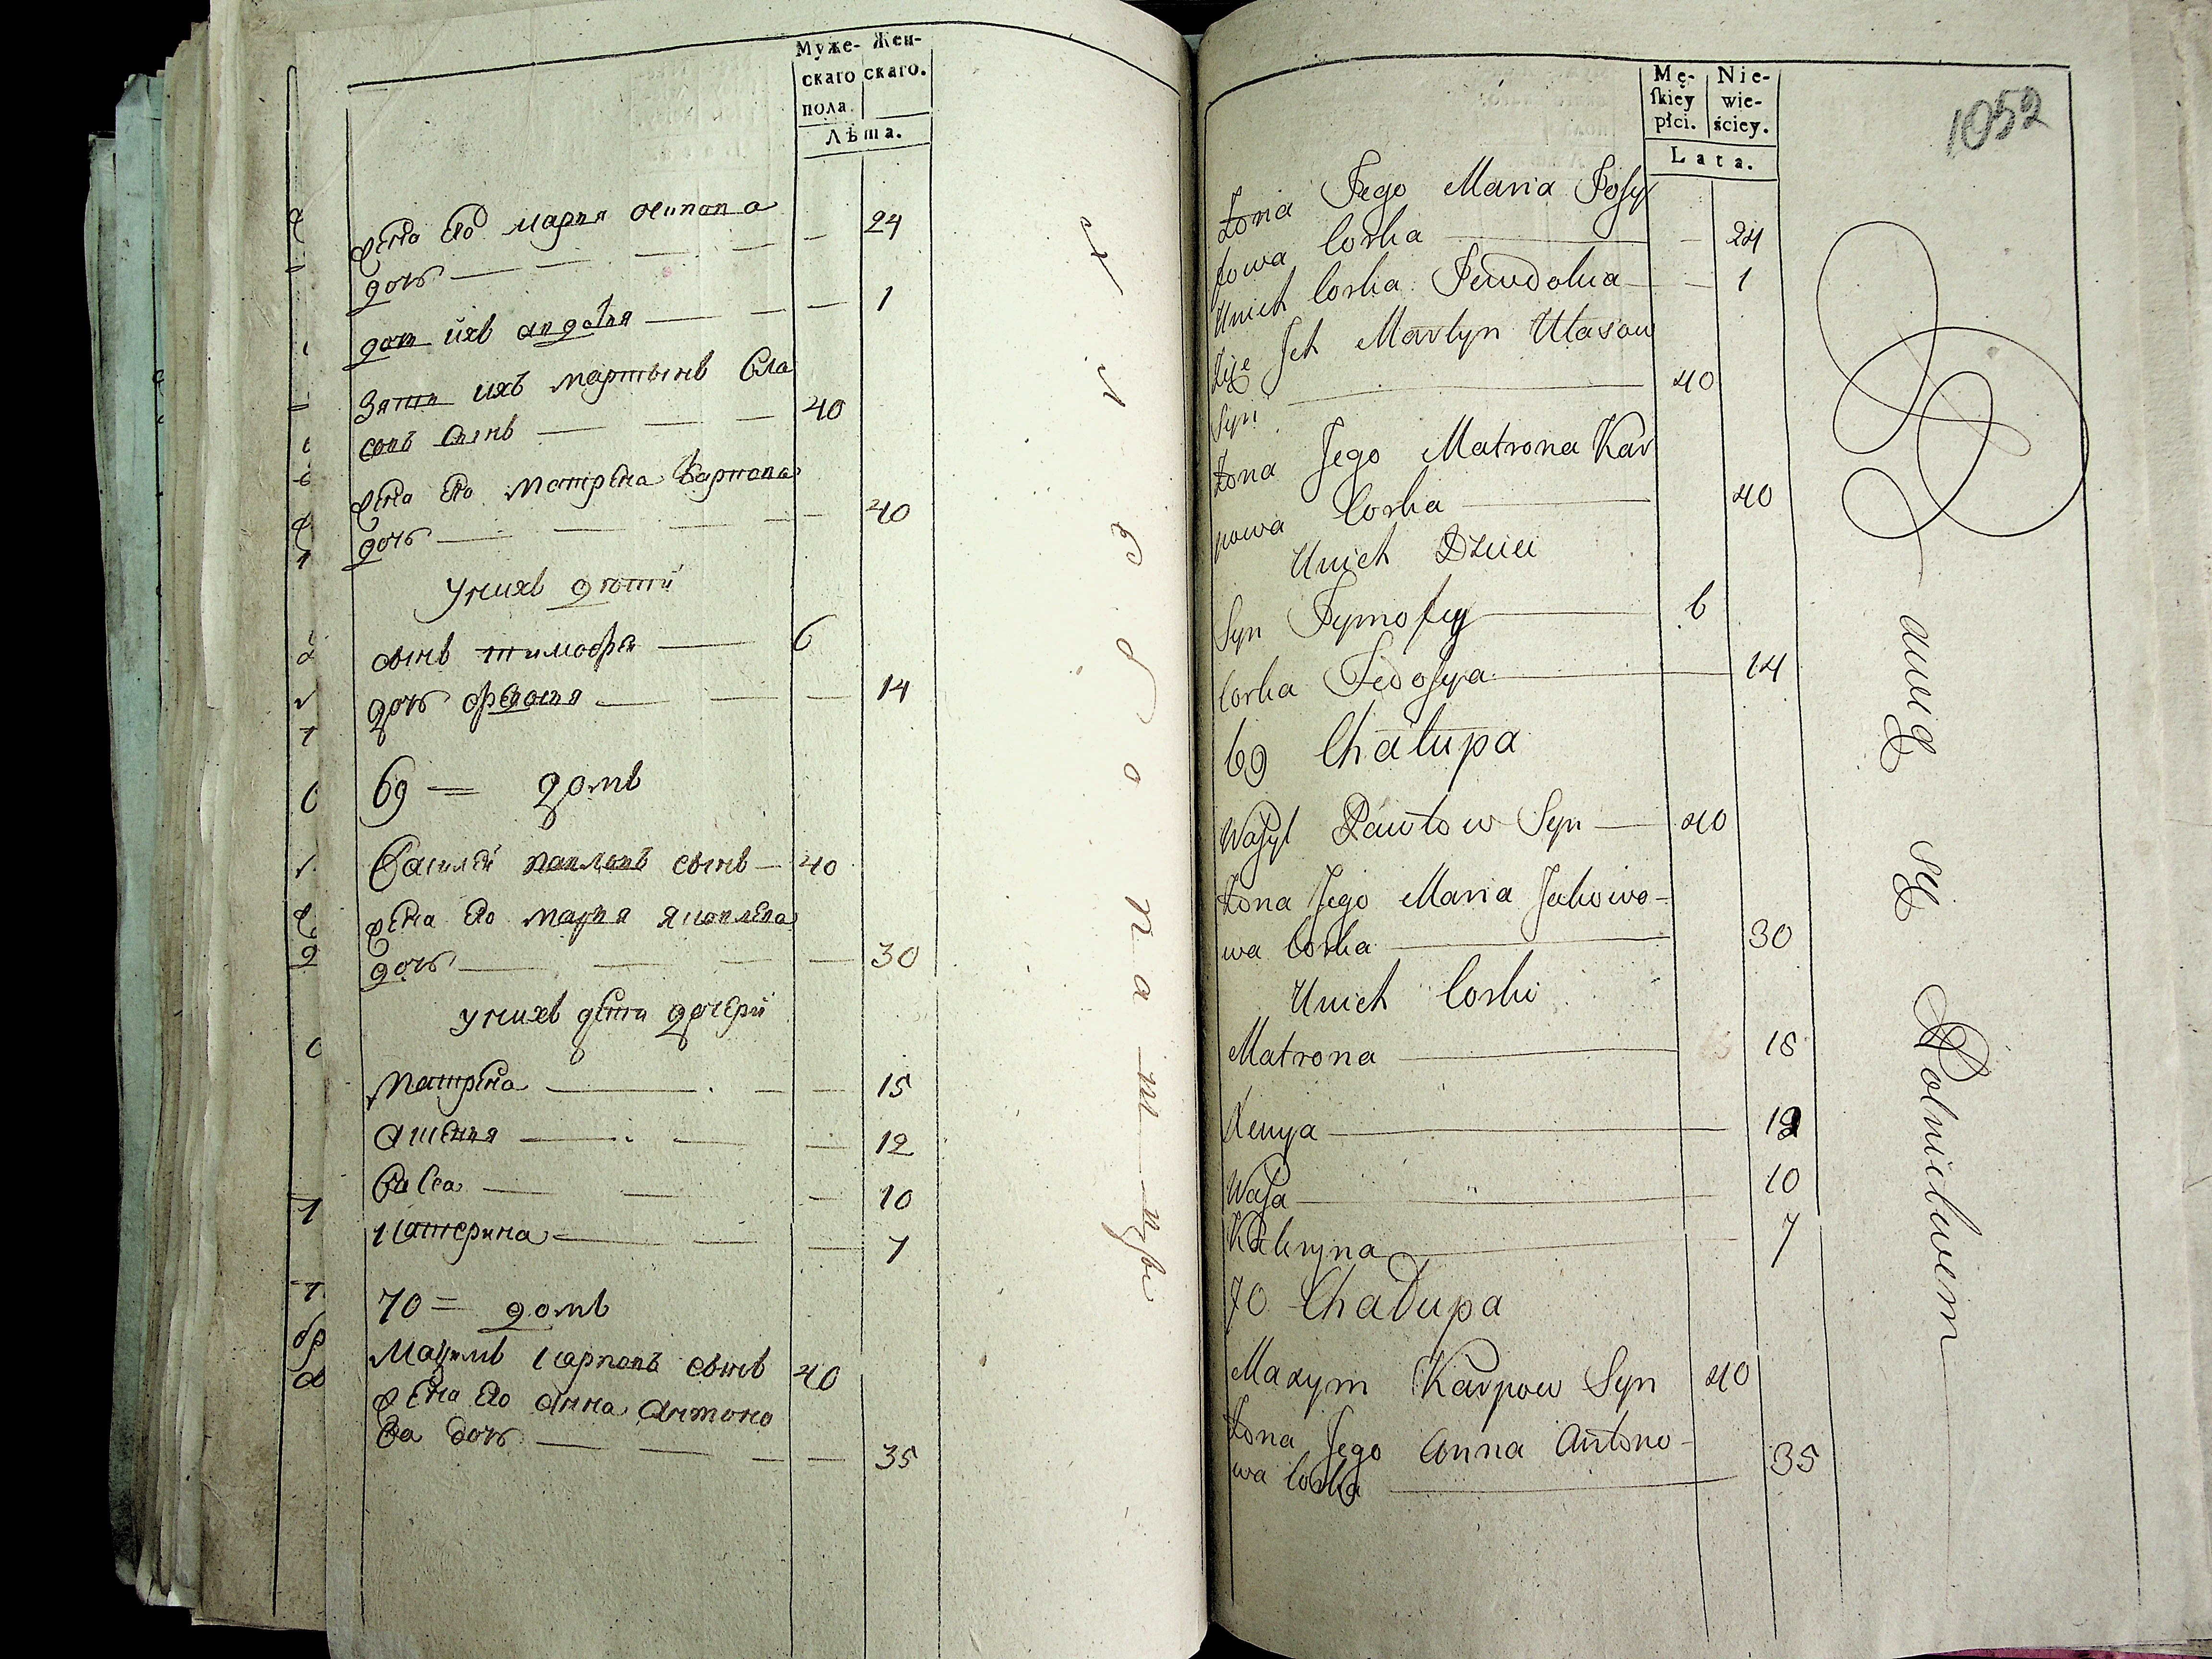 Муже- Жен-
скаго скаго.
пола.
Лѣта.
жена его марья осипова
дочь — 24
дочь ихъ авдотья — 1
Зять ихъ мартынъ Вла
совъ сынъ — 40
жена его матрена карпова
дочь — 40
у нихъ дѣти
сынъ тимофей — 6
дочь федосья — 14
69 = домъ
Василей павловъ сынъ — 40
жена его марья яковлева
дочь — 30
у нихъ дети дочери
матрена — 15
аксенья — 12
— 10
катерина — 7
70 = домъ
Максимъ карповъ сынъ 40
жена его анна антоно
ва дочь — 35
Mę- Nie-
skiey wie-
płci. ściey.
Lata.
1052
Żona Jego Maria Josy
fowa Corka — 24
Unich Corka Jewdokia — 1
Zięc Jch Martyn Ułasow
Syn — 40
Żona Jego Matrona Kar
powa Corka — 40
Unich Dzieci
Syn Tymofey — 6
Corka Fedosya — 14
69 Chałupa
Wasyl Pawłow Syn — 40
Żona Jego Maria Jakowo-
wa Corka — 30
Unich Corki
Matrona — 15
Xenya — 12
Wasa — 10
Kateryna — 7
70 Chałupa
Maxym Karpow Syn 40
Żona Jego Anna Antono-
wa Corka — 35
— awią się Rolnictwem —